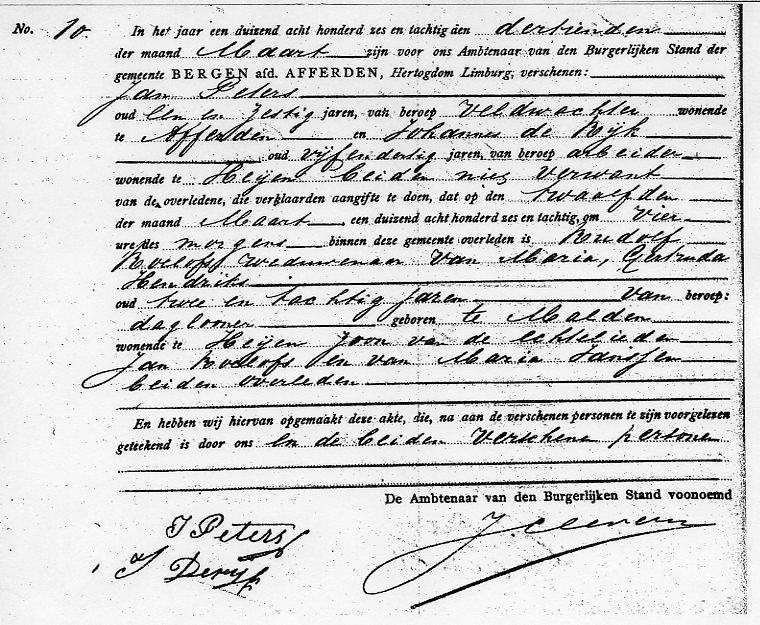 No. 10. In het jaar een duizend acht honderd zes en tachtig den dertienden
der maand Maart zijn voor ons Ambtenaar van den Burgerlijken Stand der
gemeente BERGEN afd. AFFERDEN, Hertogdom Limburg, verschenen:
Jan Peters
oud Een en zestig jaren, van beroep Veldwachter wonende
te Afferden en Johannes de Ryk
oud vijfendertig jaren, van beroep arbeider
wonende te Heijen beiden niet verwant
van de overledene, die verklaarden aangifte te doen, dat op den twaalfden
der maand Maart een duizend acht honderd zes en tachtig, om Vier
ure des morgens binnen deze gemeente overleden is Rudolf
Roelofs weduwenaar van Maria, Gertruda
Hendriks
oud twee en tachtig jaren van beroep:
daglooner geboren te Malden
wonende te Heijen zoon van de echtelieden
Jan Roelofs en van Maria Janssen
beiden overleden
En hebben wij hiervan opgemaakt deze akte, die, na aan de verschenen personen te zijn voorgelezen
geteekend is door ons en de beiden verschene personen
De Ambtenaar van den Burgerlijken Stand voonoemd
J Peters
J Deryk